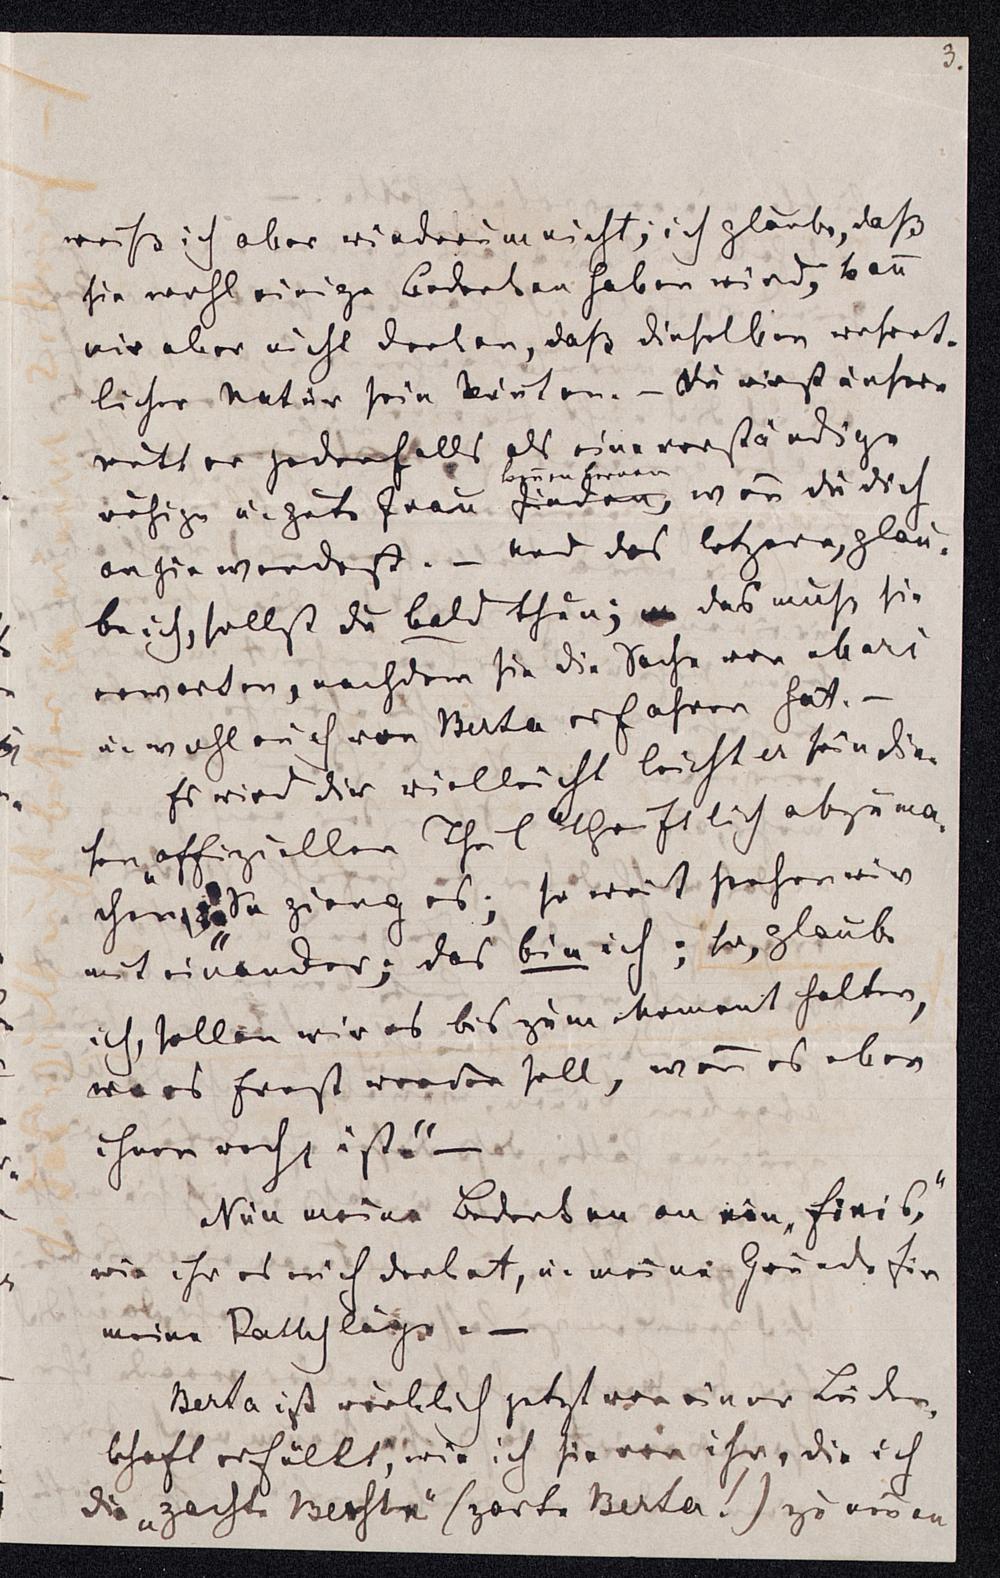 3.
weiß ich aber wiederum nicht; ich glaube, daß
sie wohl einige Bedenken haben wird, kan̄
mir aber nicht denken, daß dieselben wesent-
licher Natur sein könten. – Du wirst unsere
Mutter jedenfalls als eine verständige
kennen lernen
ruhige u. gute Frau finden, wen̄ du dich
an sie wendest. – Und das letzere, glau-
be ich, sollst du bald thun; das muß sie
erwarten, nachdem sie die Sache von
u. wohl auch von Berta erfahren hat. –
Es wird dir vielleicht leichter sein die-
sen „offiziellen Theil“ schriftlich abzuma-
chen, „So gieng es; so weit stehen wir
mit einander; das bin ich; so, glaube
ich, sollen wir es bis zum Moment halten,
wo es Ernst werden soll, wen̄ es eben
ihnen recht ist.“ –
Nun meine Bedenken an ein „Finis,“
wie ihr es euch denket, u. meine Gründe für
meine Rathschläge. –
Berta ist wirklich jetzt von einer Leiden-
schaft erfüllt, wie ich sie von ihr, die ich
die „zachte Berthe“ (zarte Berta!) zu nen̄en